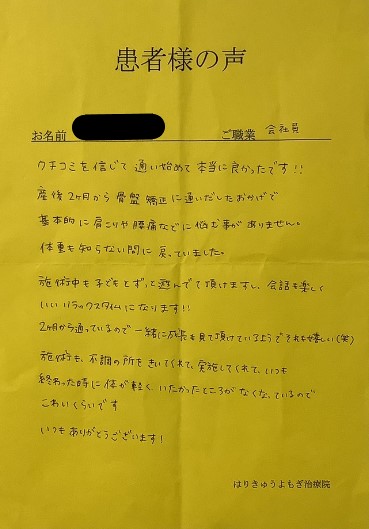 患者様の声
お名前 ご職業 会社員
クチコミを信じて通い始めて本当に良かったです!!
産後2ヶ月から骨盤矯正に通いだしたおかげで
基本的に肩こりや腰痛などに悩む事がありません。
体重も知らない間に戻っていました。
施術中も子どもとずっと遊んでて頂けますし、会話も楽しく
いいリラックスタイムになります!!
2ヶ月から通っているので一緒に成長を見て頂けているようでそれも嬉しい(笑)
施術も、不調の所をきいてくれて、実施してくれて、いつも
終わった時に体が軽く いたかったところがなくなっているので
こわいくらいです
いつもありがとうございます!
はりきゅうよもぎ治療院